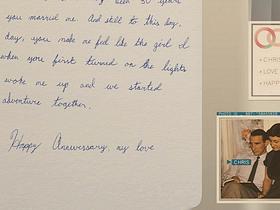 you married me. And still to this day,
day, you make me feel like the girl I
when you first turned on the lights
woke me up and we started
adventure together.
Happy Anniversary, my love
CHRIS
LOVE
HAPP
CHRIS